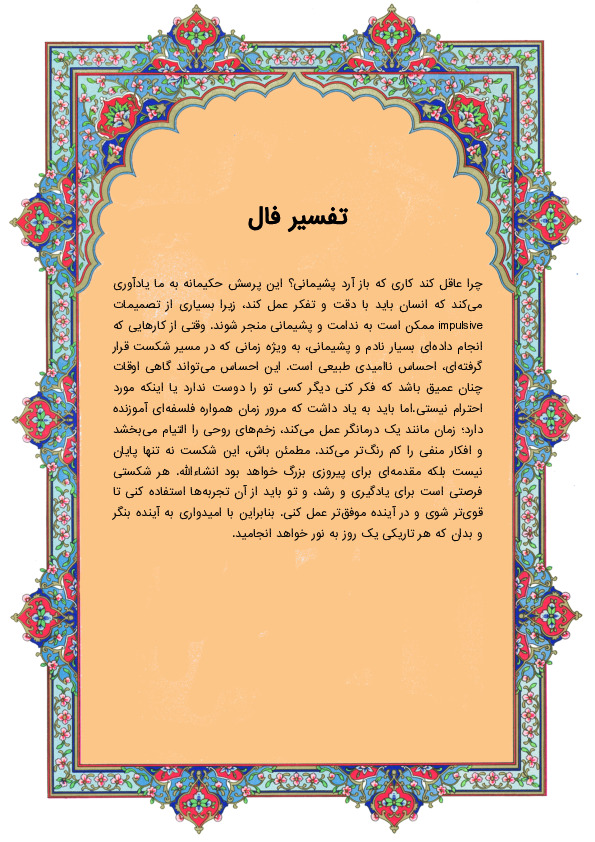 تفسیر فال
چرا عاقل کند کاری که باز آرد پشیمانی؟ این پرسش حکیمانه به ما یادآوری
می‌کند که انسان باید با دقت و تفکر عمل کند، زیرا بسیاری از تصمیمات
impulsive ممکن است به ندامت و پشیمانی منجر شوند. وقتی از کارهایی که
انجام داده‌ای بسیار نادم و پشیمانی، به ویژه زمانی که در مسیر شکست قرار
گرفته‌ای، احساس ناامیدی طبیعی است. این احساس می‌تواند گاهی اوقات
چنان عمیق باشد که فکر کنی دیگر کسی تو را دوست ندارد یا اینکه مورد
احترام نیستی.اما باید به یاد داشت که مرور زمان همواره فلسفه‌ای آموزنده
دارد؛ زمان مانند یک درمانگر عمل می‌کند، زخم‌های روحی را التیام می‌بخشد
و افکار منفی را کم رنگ‌تر می‌کند. مطمئن باش، این شکست نه تنها پایان
نیست بلکه مقدمه‌ای برای پیروزی بزرگ خواهد بود انشاءالله. هر شکستی
فرصتی است برای یادگیری و رشد، و تو باید از آن تجربه‌ها استفاده کنی تا
قوی‌تر شوی و در آینده موفق‌تر عمل کنی. بنابراین با امیدواری به آینده بنگر
و بدان که هر تاریکی یک روز به نور خواهد انجامید.